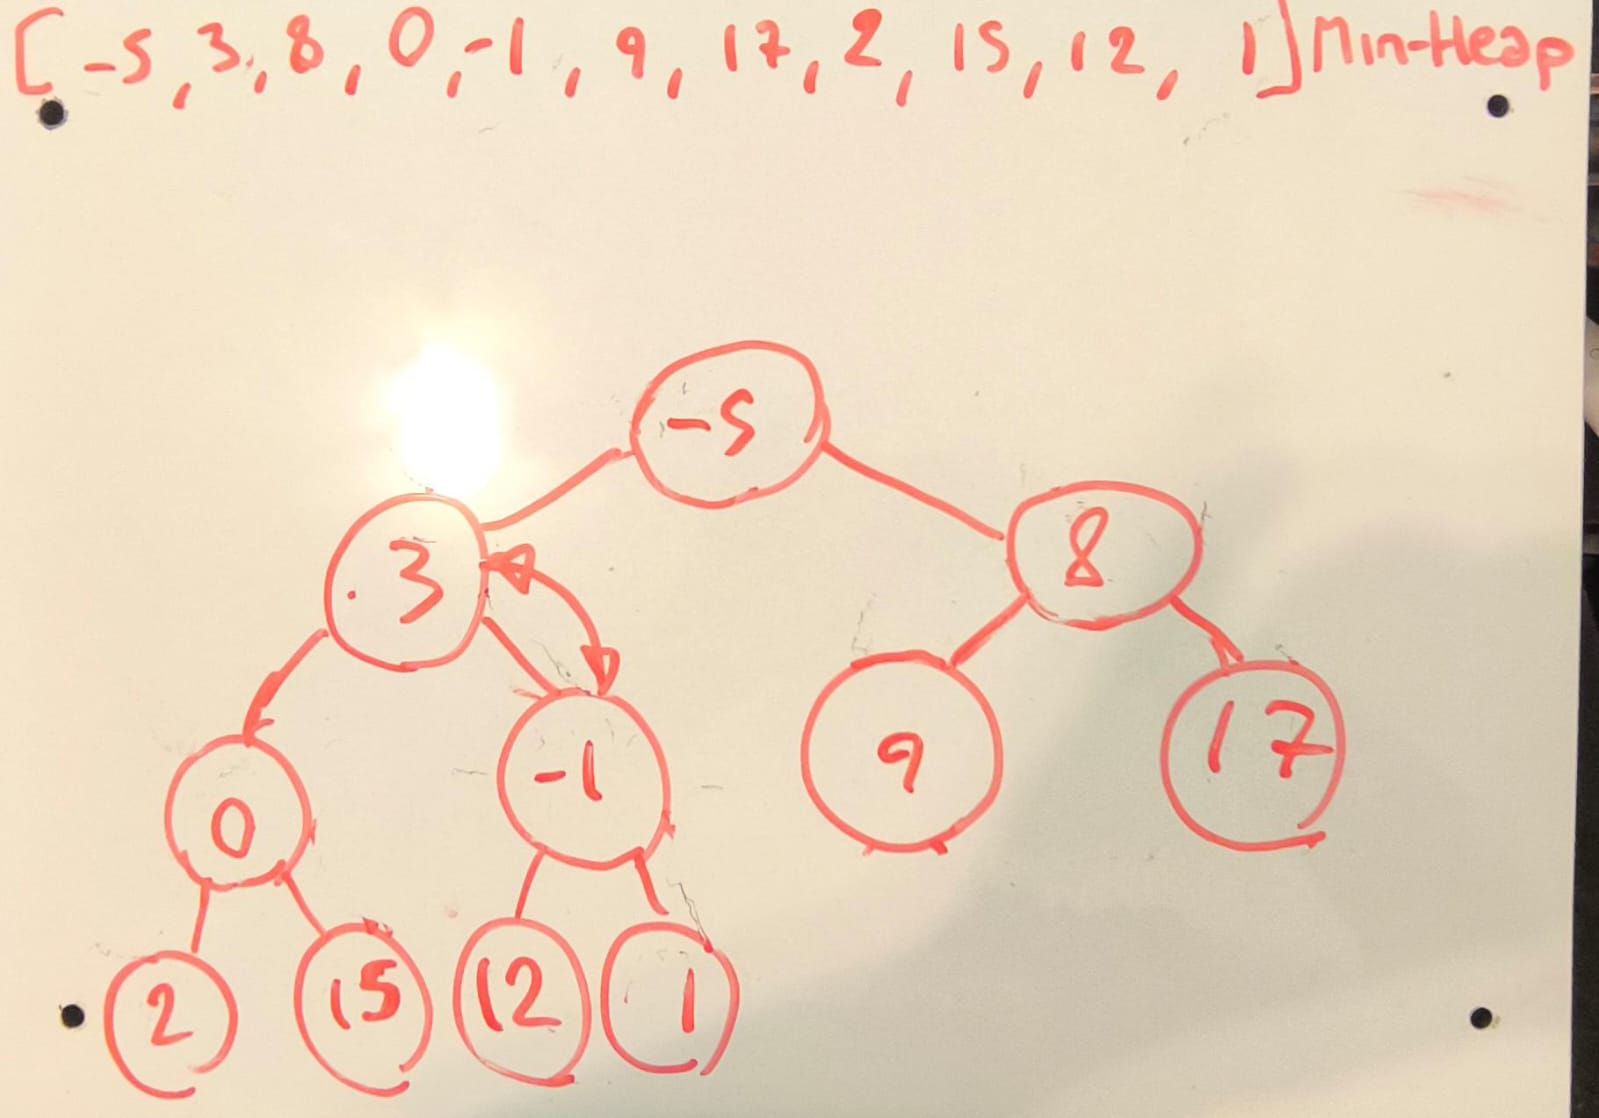 [-5, 3, 8, 0, -1, 9, 17, 2, 15, 12, 1] Min-Heap
-5
3 8
0 -1 9 17
2 15 12 1